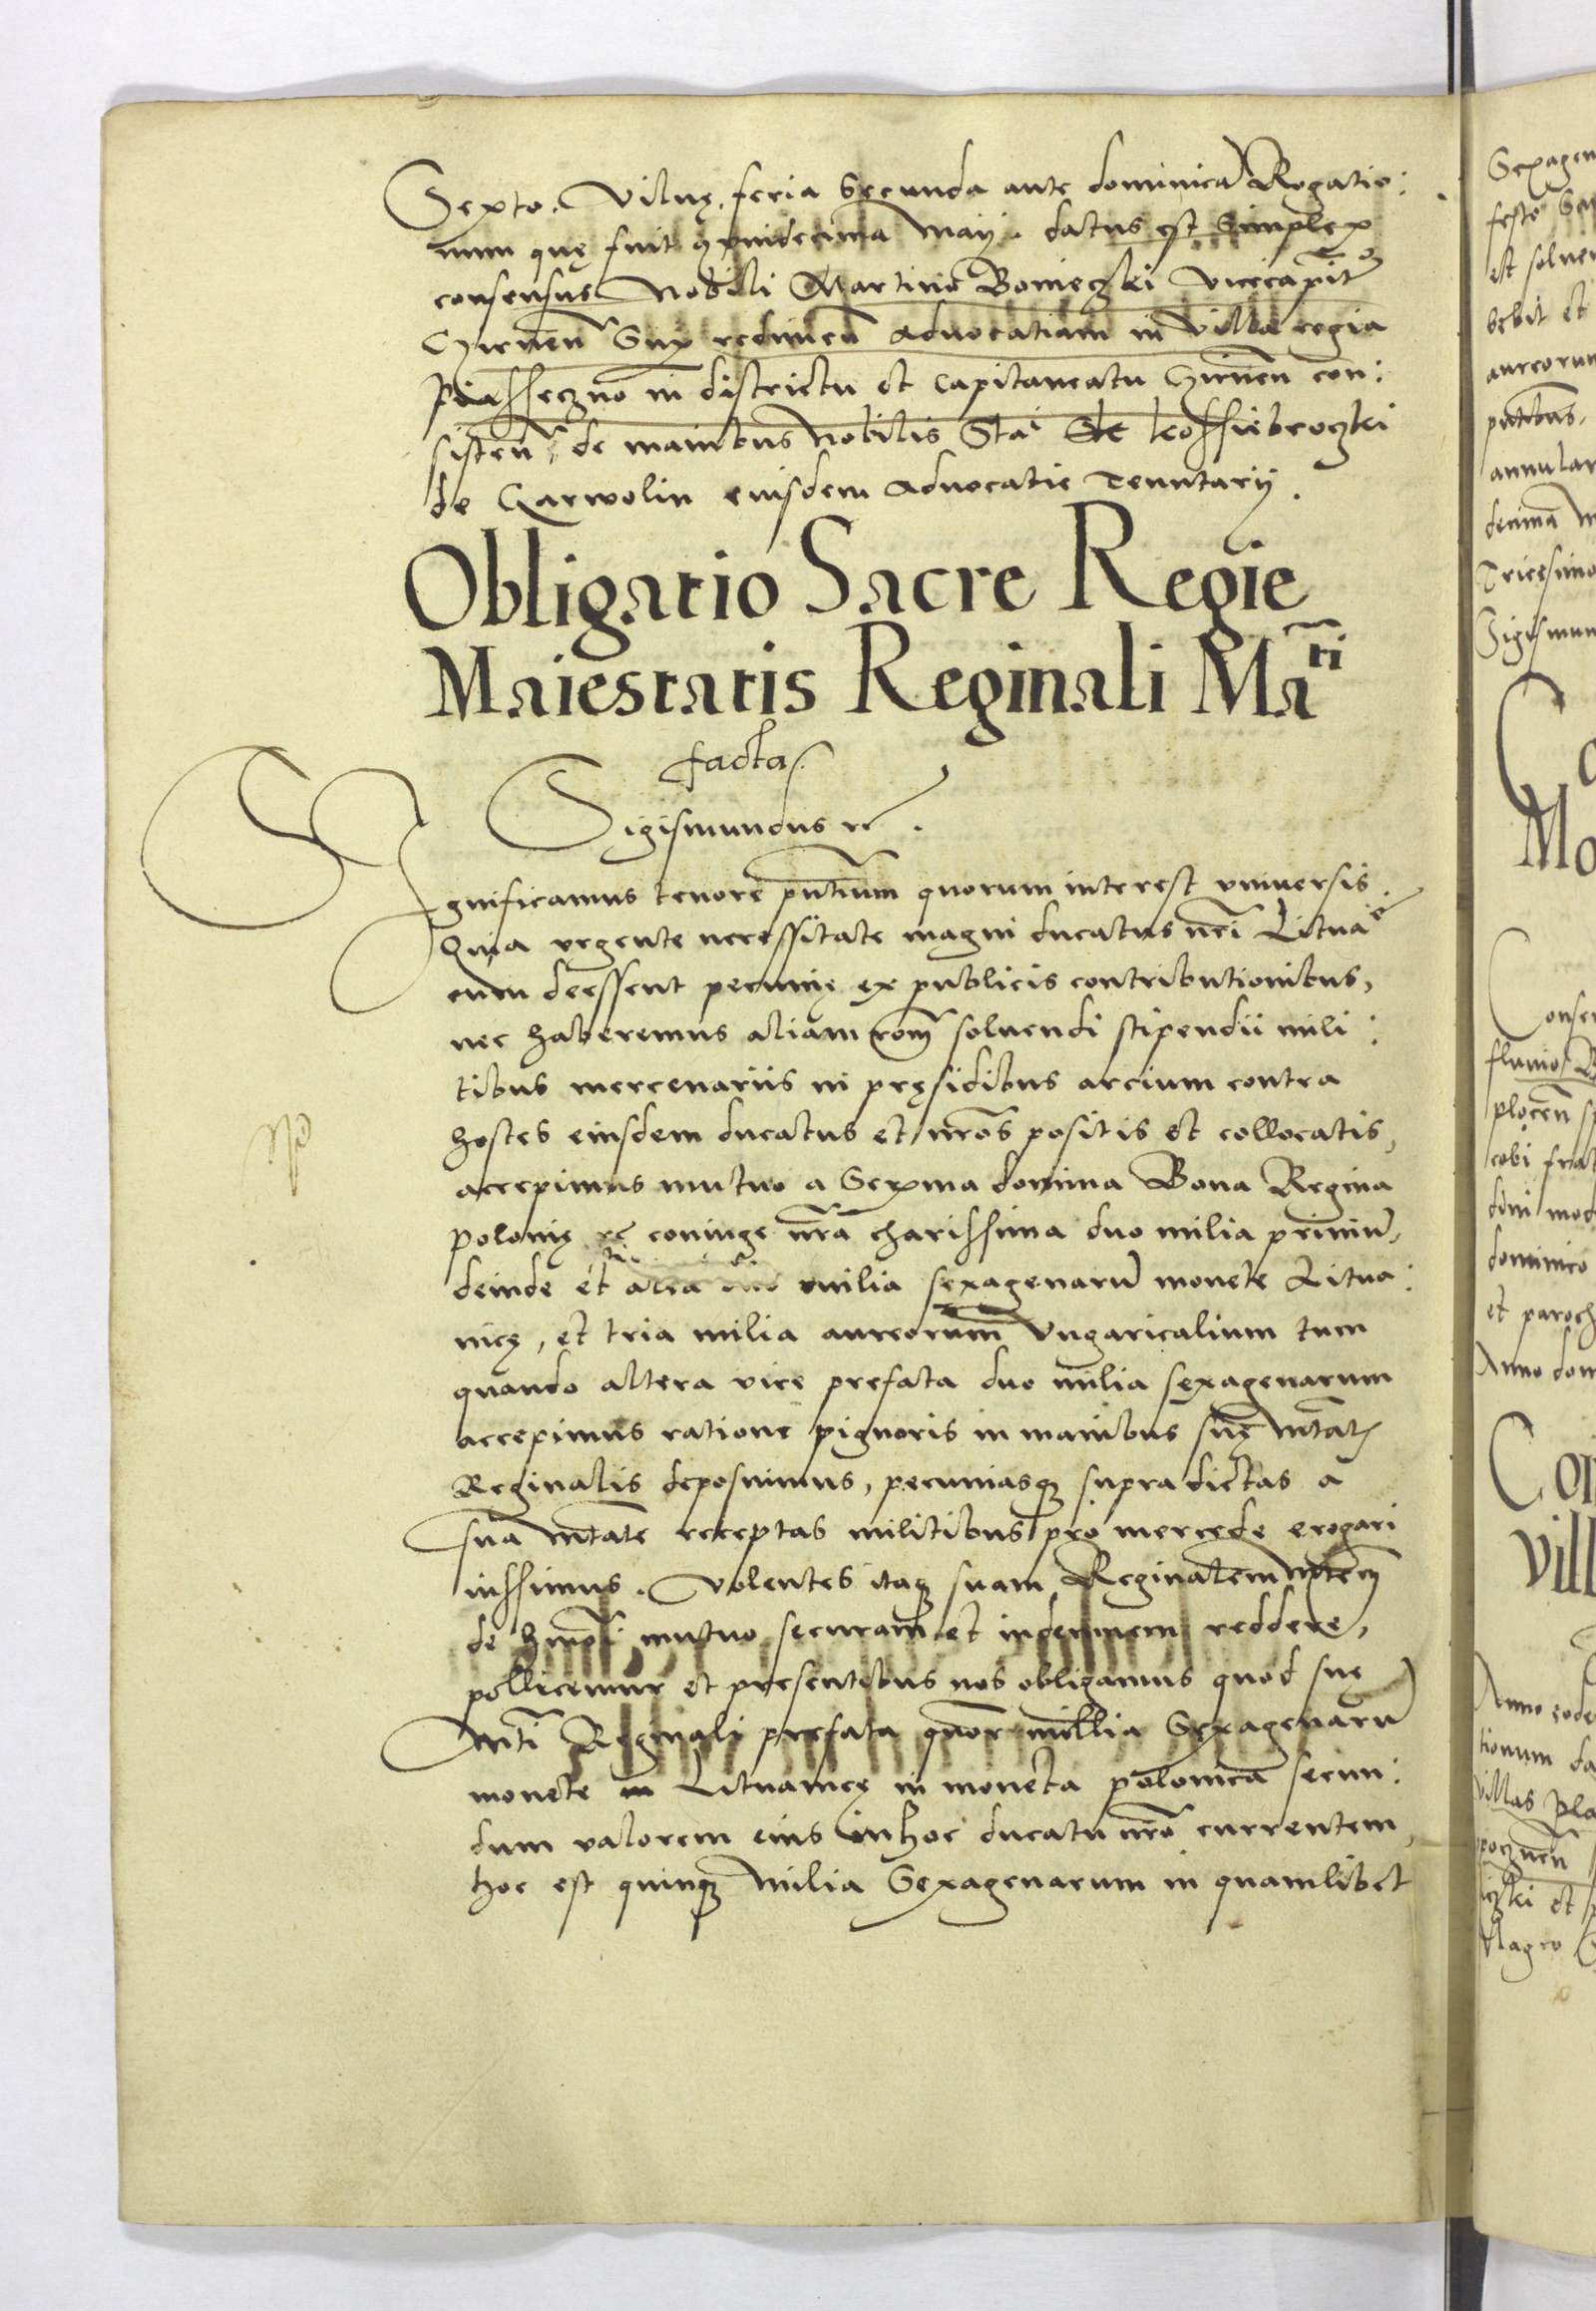 Sexto. Vilnę, feria Secunda ante dominicā Rogatio:
num quę fuit quindecima Maij. datus est Simplex
consensus Nobili Martino Boniecʒki vicecapit̄
Cʒirnen̄ Suꝑ redimen̄ advocatiam in villa regia
Piassecʒno in districtu et Capitaneatu Cʒirnen̄ con:
sisten̄ de manibus Nobilis Sta͞i de
de Garwolin eiusdem advocatie Tenutarij.
Obligatio Sacre Regie
Maiestatis Reginali Ma͞ti
facta
Sigismundus ꝛc.
Significamus tenore pn̄tium quorum interest vniversis.
Quia vrgente necessitate magni ducatus n͞ri Litua͞ie
cum deessent pecunię ex publicis contributionibus,
nec haberemus aliam ro͞m solvendi stipendii mili:
tibus mercenariis in pręsidibus arcium contra
hostes eiusdem ducatus et n͞ros positis et collocatis,
accepimus mutuo a Serma domina Bona Regina
Polonię ꝛc̄ coniuge n͞ra charissima duo milia primū,
deinde et alia duo milia sexagenarū monete Litua:
nicę, et tria milia aureorum Vngaricalium tum
quando altera vice prefata duo milia sexagenarum
accepimus ratione pignoris in manibus suę M͞tatis
Reginalis deposuimus, pecuniasqꝫ supradictas a
sua M͞tate receptas militibus pro mercede erogari
iussimus. Volentes itaqꝫ suam Reginalem M͞tem
de hm͞oi mutuo securam et indemnem reddere,
pollicemur et presentibus nos obligamus quod suę
M͞ti Reginali prefata quo͞r millia Sexagenarū
monete Lituanicę in moneta polonica secun:
dum valorem eius in hoc ducatu n͞ro currentem,
hoc est quinqꝫ milia Sexagenarum in quamlibet